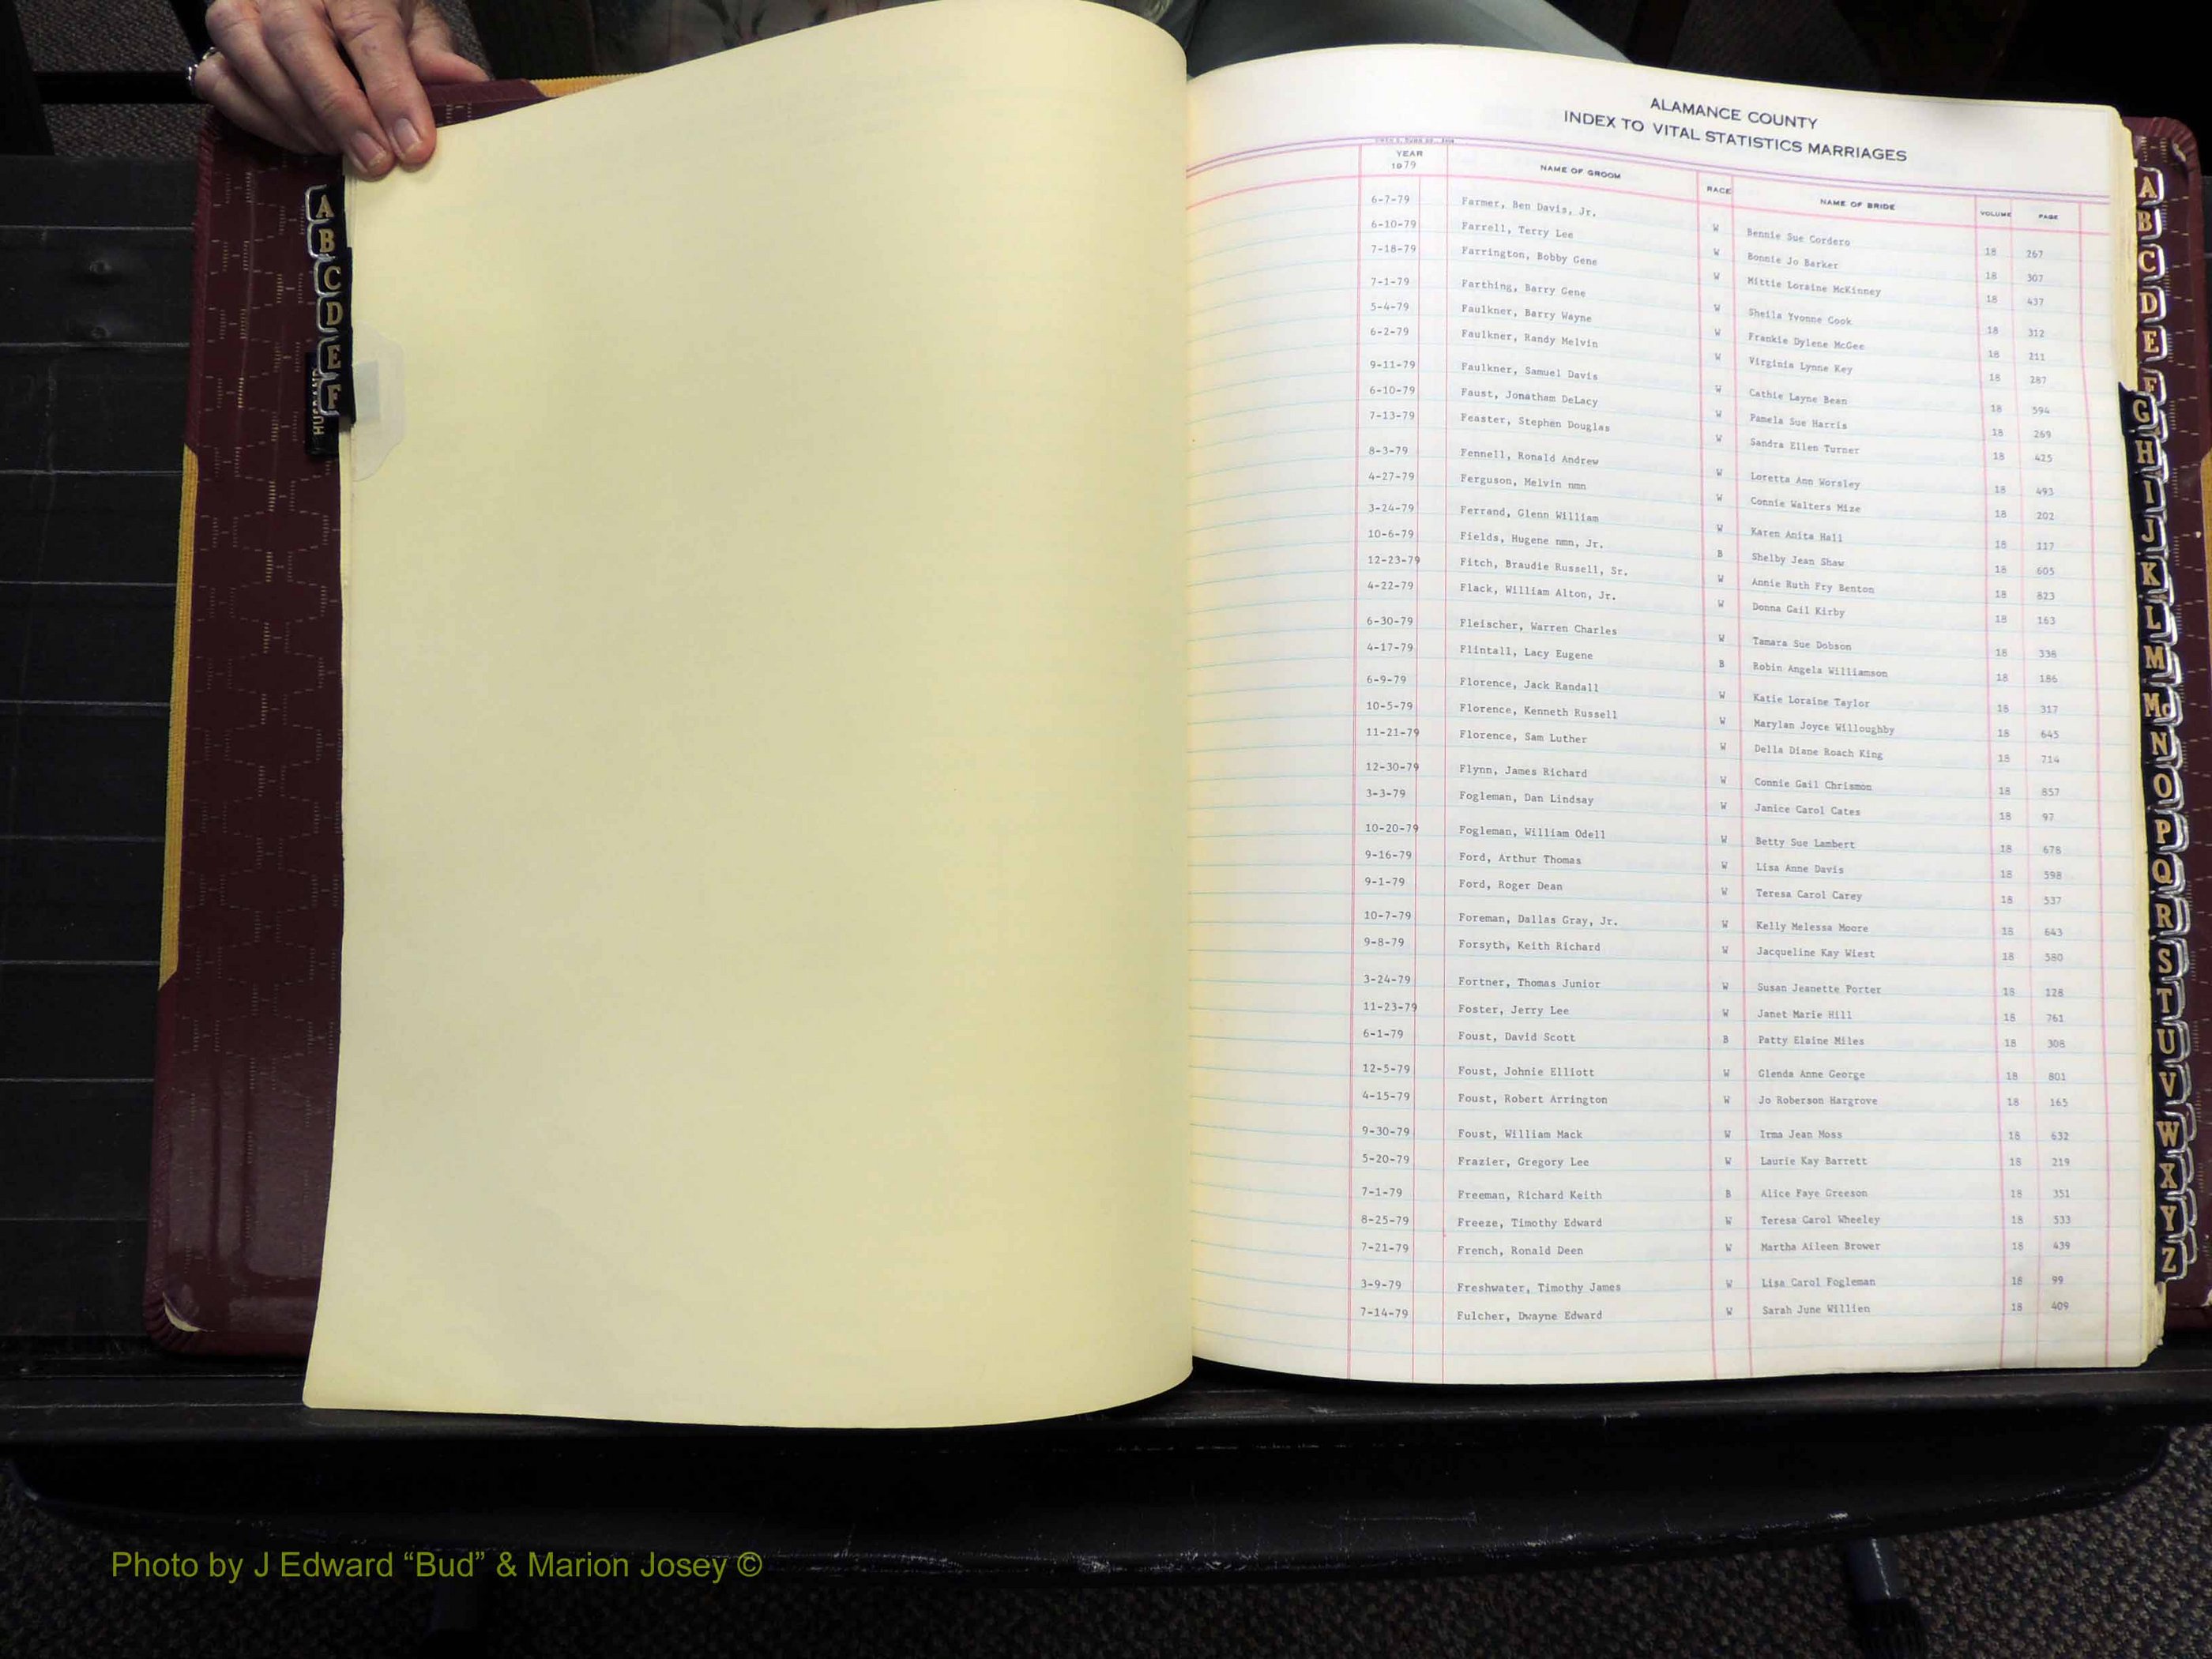 ALAMANCE COUNTY
INDEX TO VITAL STATISTICS MARRIAGES
YEAR NAME OF GROOM RACE NAME OF BRIDE VOLUME PAGE
1979
6-7-79 Farmer, Ben Davis, Jr. W Bennie Sue Cordero 18 267
6-10-79 Farrell, Terry Lee W Bonnie Jo Barker 18 307
7-18-79 Farrington, Bobby Gene W Mittie Loraine McKinney 18 437
7-1-79 Farthing, Barry Gene W Sheila Yvonne Cook 18 312
5-4-79 Faulkner, Barry Wayne W Frankie Dylene McGee 18 211
6-2-79 Faulkner, Randy Melvin W Virginia Lynne Key 18 287
9-11-79 Faulkner, Samuel Davis W Cathie Layne Bean 18 594
6-10-79 Faust, Jonatham DeLacy W Pamela Sue Harris 18 269
7-13-79 Feaster, Stephen Douglas W Sandra Ellen Turner 18 425
8-3-79 Fennell, Ronald Andrew W Loretta Ann Worsley 18 493
4-27-79 Ferguson, Melvin nmn W Connie Walters Mize 18 202
3-24-79 Ferrand, Glenn William W Karen Anita Hall 18 117
10-6-79 Fields, Hugene nmn, Jr. B Shelby Jean Shaw 18 605
12-23-79 Fitch, Braudie Russell, Sr. W Annie Ruth Fry Benton 18 823
4-22-79 Flack, William Alton, Jr. W Donna Gail Kirby 18 163
6-30-79 Fleischer, Warren Charles W Tamara Sue Dobson 18 338
4-17-79 Flintall, Lacy Eugene B Robin Angela Williamson 18 186
6-9-79 Florence, Jack Randall W Katie Loraine Taylor 18 317
10-5-79 Florence, Kenneth Russell W Marylan Joyce Willoughby 18 645
11-21-79 Florence, Sam Luther W Della Diane Roach King 18 714
12-30-79 Flynn, James Richard W Connie Gail Chrismon 18 857
3-3-79 Fogleman, Dan Lindsay W Janice Carol Cates 18 97
10-20-79 Fogleman, William Odell W Betty Sue Lambert 18 678
9-16-79 Ford, Arthur Thomas W Lisa Anne Davis 18 598
9-1-79 Ford, Roger Dean W Teresa Carol Carey 18 537
10-7-79 Foreman, Dallas Gray, Jr. W Kelly Melessa Moore 18 643
9-8-79 Forsyth, Keith Richard W Jacqueline Kay Wiest 18 580
3-24-79 Fortner, Thomas Junior W Susan Jeanette Porter 18 128
11-23-79 Foster, Jerry Lee W Janet Marie Hill 18 761
6-1-79 Foust, David Scott B Patty Elaine Miles 18 308
12-5-79 Foust, Johnie Elliott W Glenda Anne George 18 801
4-15-79 Foust, Robert Arrington W Jo Roberson Hargrove 18 165
9-30-79 Foust, William Mack W Irma Jean Moss 18 632
5-20-79 Frazier, Gregory Lee W Laurie Kay Barrett 18 219
7-1-79 Freeman, Richard Keith B Alice Faye Greeson 18 351
8-25-79 Freeze, Timothy Edward W Teresa Carol Wheeley 18 533
7-21-79 French, Ronald Deen W Martha Aileen Brower 18 439
3-9-79 Freshwater, Timothy James W Lisa Carol Fogleman 18 99
7-14-79 Fulcher, Dwayne Edward W Sarah June Willien 18 409
A
B
C
D
E
F
A
B
C
D
E
F
G
H
I
J
K
L
M
Mc
N
O
P
Q
R
S
T
U
V
W
X
Y
Z
Photo by J Edward “Bud” & Marion Josey ©